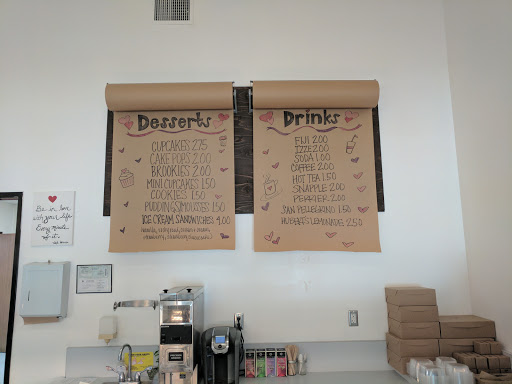 Desserts
CUPCAKES 2.75
CAKE POPS 2.00
BROOKIES 2.00
MINI CUPCAKES 1.50
COOKIES 1.50
PUDDINGS/MOUSSES 1.50
ICE CREAM SANDWICHES 4.00
Drinks
FIJI 2.00
IZZE 2.00
SODA 1.00
COFFEE 2.00
HOT TEA 1.50
SNAPPLE 2.00
PERRIER 2.00
SAN PELLEGRINO 1.50
HUBERT'S LEMONADE 2.50
Be in love
with your life
Every minute
of it.